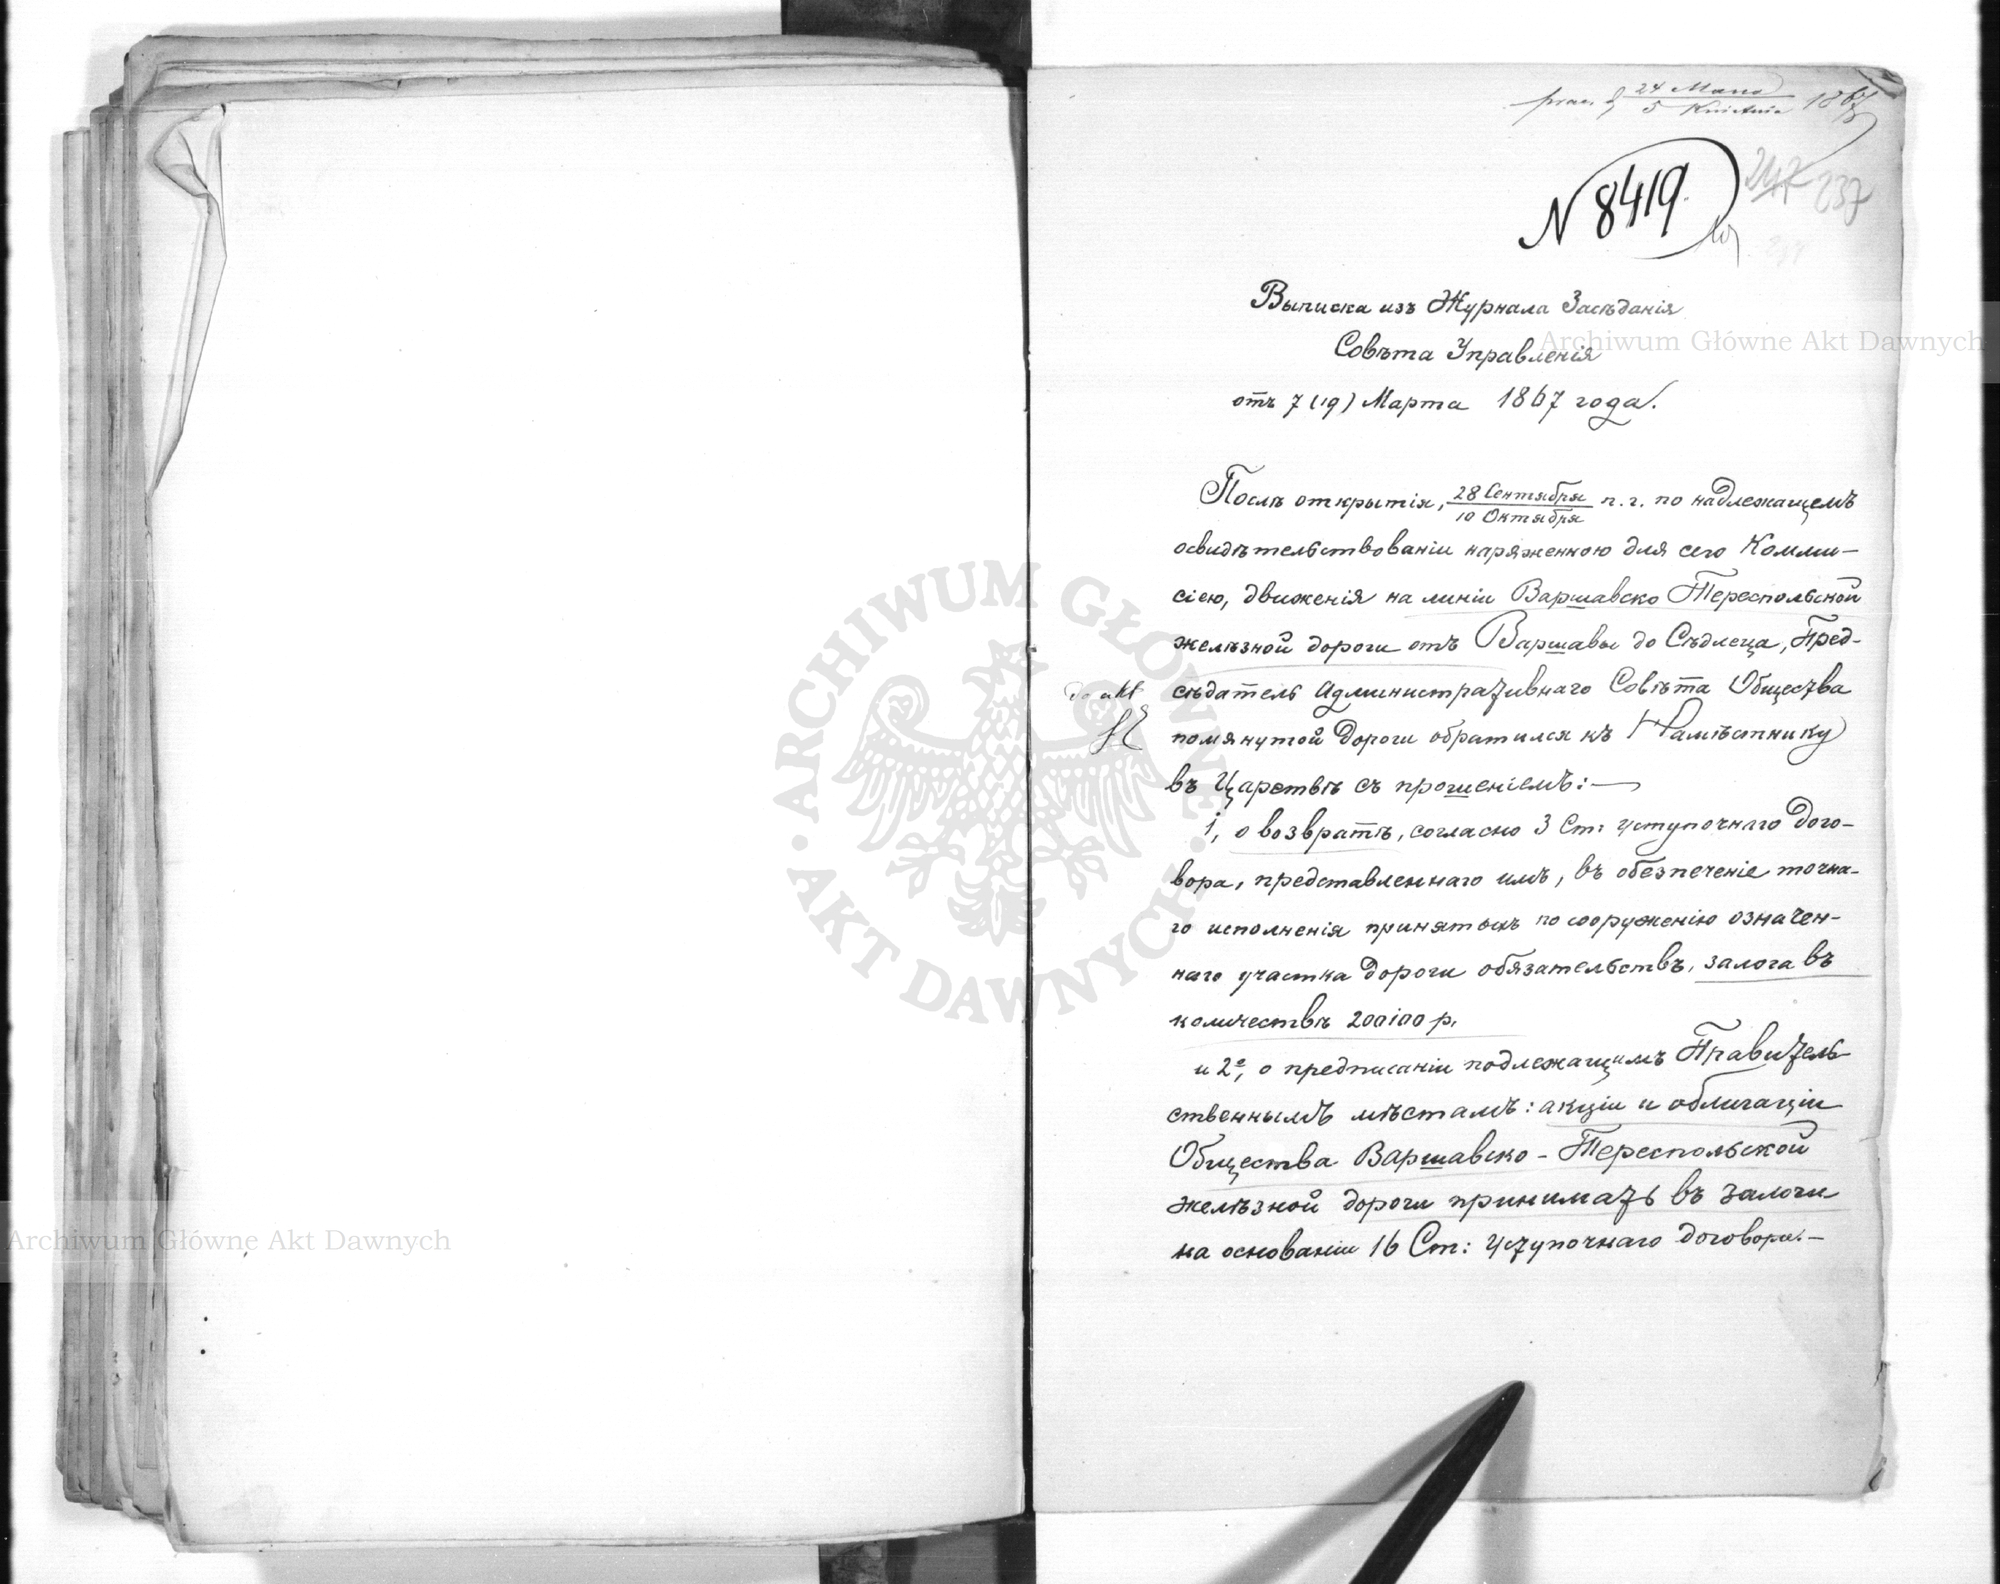 24 Marca
5 Kwietnia 1867
N 8419.
247 237
Выписка изъ Журнала Засѣданія
Совѣта Управленія
отъ 7 (19) Марта 1867 года.
Послѣ открытія, 28 Сентября / 10 Октября п. г. по надлежащемъ
освидѣтельствованіи наряженною для сего Комми-
сіею, движенія на линіи Варшавско Тереспольской
желѣзной дороги отъ Варшавы до Сѣдлеца, Пред-
сѣдатель Административнаго Совѣта Общества
помянутой дороги обратился къ Намѣстнику
въ Царствѣ съ прошеніемъ: —
do akt
1, о возвратѣ, согласно 3 Ст: уступочнаго дого-
вора, представленнаго имъ, въ обезпеченіе точна-
го исполненія принятыхъ по сооруженію означен-
наго участка дороги обязательствъ, залога въ
количествѣ 200100 р.
и 2е, о предписаніи подлежащимъ Правитель-
ственнымъ мѣстамъ: акціи и облигаціи
Общества Варшавско - Тереспольской
желѣзной дороги принимать въ залоги
на основаніи 16 Ст: уступочнаго договора. —
Archiwum Główne Akt Dawnych
Archiwum Główne Akt Dawnych
ARCHIWUM GŁÓWNE · AKT DAWNYCH ·